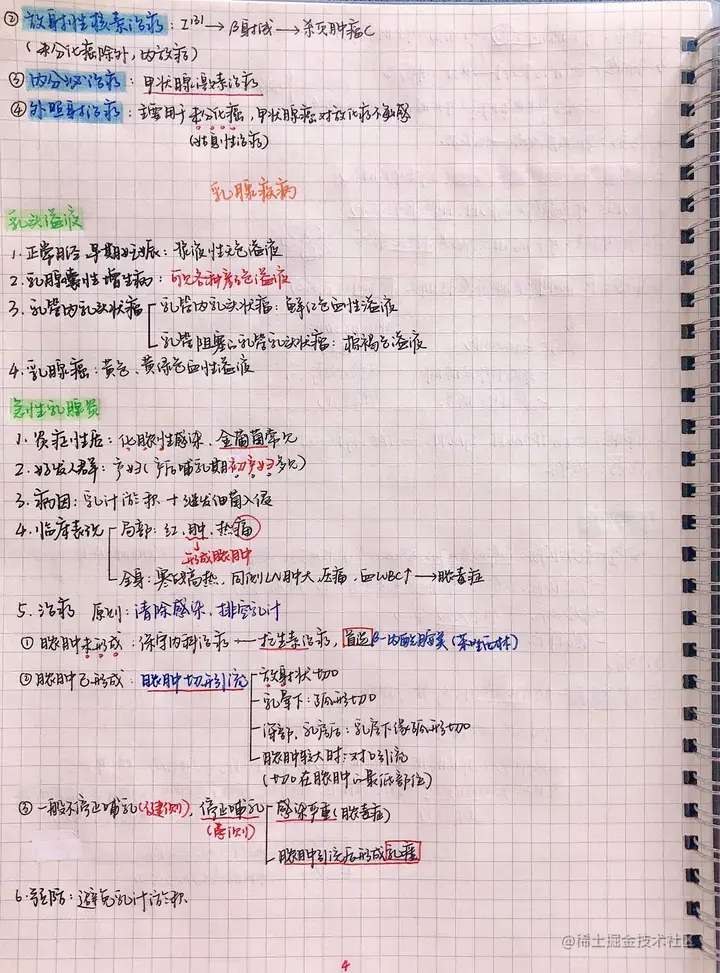 ② 放射性核素治疗：I131→β射线→杀灭肿瘤C
(未分化癌除外，内放疗)
③ 内分泌治疗：甲状腺激素治疗
④ 外照射治疗：主要用于未分化癌，甲状腺癌对放化疗不敏感
(姑息性治疗)
乳腺疾病
乳头溢液
1. 正常月经、早期妊娠：浆液性无色溢液
2. 乳腺囊性增生病：可见各种颜色溢液
3. 乳管内乳头状瘤 乳管内乳头状瘤：鲜红色血性溢液
乳管阻塞的乳管乳头状瘤：棕褐色溢液
4. 乳腺癌：黄色、黄绿色血性溢液
急性乳腺炎
1. 炎症性质：化脓性感染，金葡菌常见
2. 好发人群：产妇(产后哺乳期初产妇多见)
3. 病因：乳汁淤积 + 继发细菌入侵
4. 临床表现 局部：红、肿、热痛
形成脓肿
全身：寒战高热，同侧LN肿大、压痛，血WBC↑→脓毒症
5. 治疗 原则：清除感染、排空乳汁
① 脓肿未形成：保守内科治疗 抗生素治疗，首选β-内酰胺类(苯唑西林)
② 脓肿已形成：脓肿切开引流 放射状切口
乳晕下：弧形切口
深部，乳房后：乳房下缘弧形切口
脓肿较大时：对口引流
(切口在脓肿的最低部位)
③ 一般不停止哺乳(健侧)，停止哺乳 感染严重(脓毒症)
(患侧)
脓肿引流后形成乳瘘
6. 预防：避免乳汁淤积
@稀土掘金技术社区
4